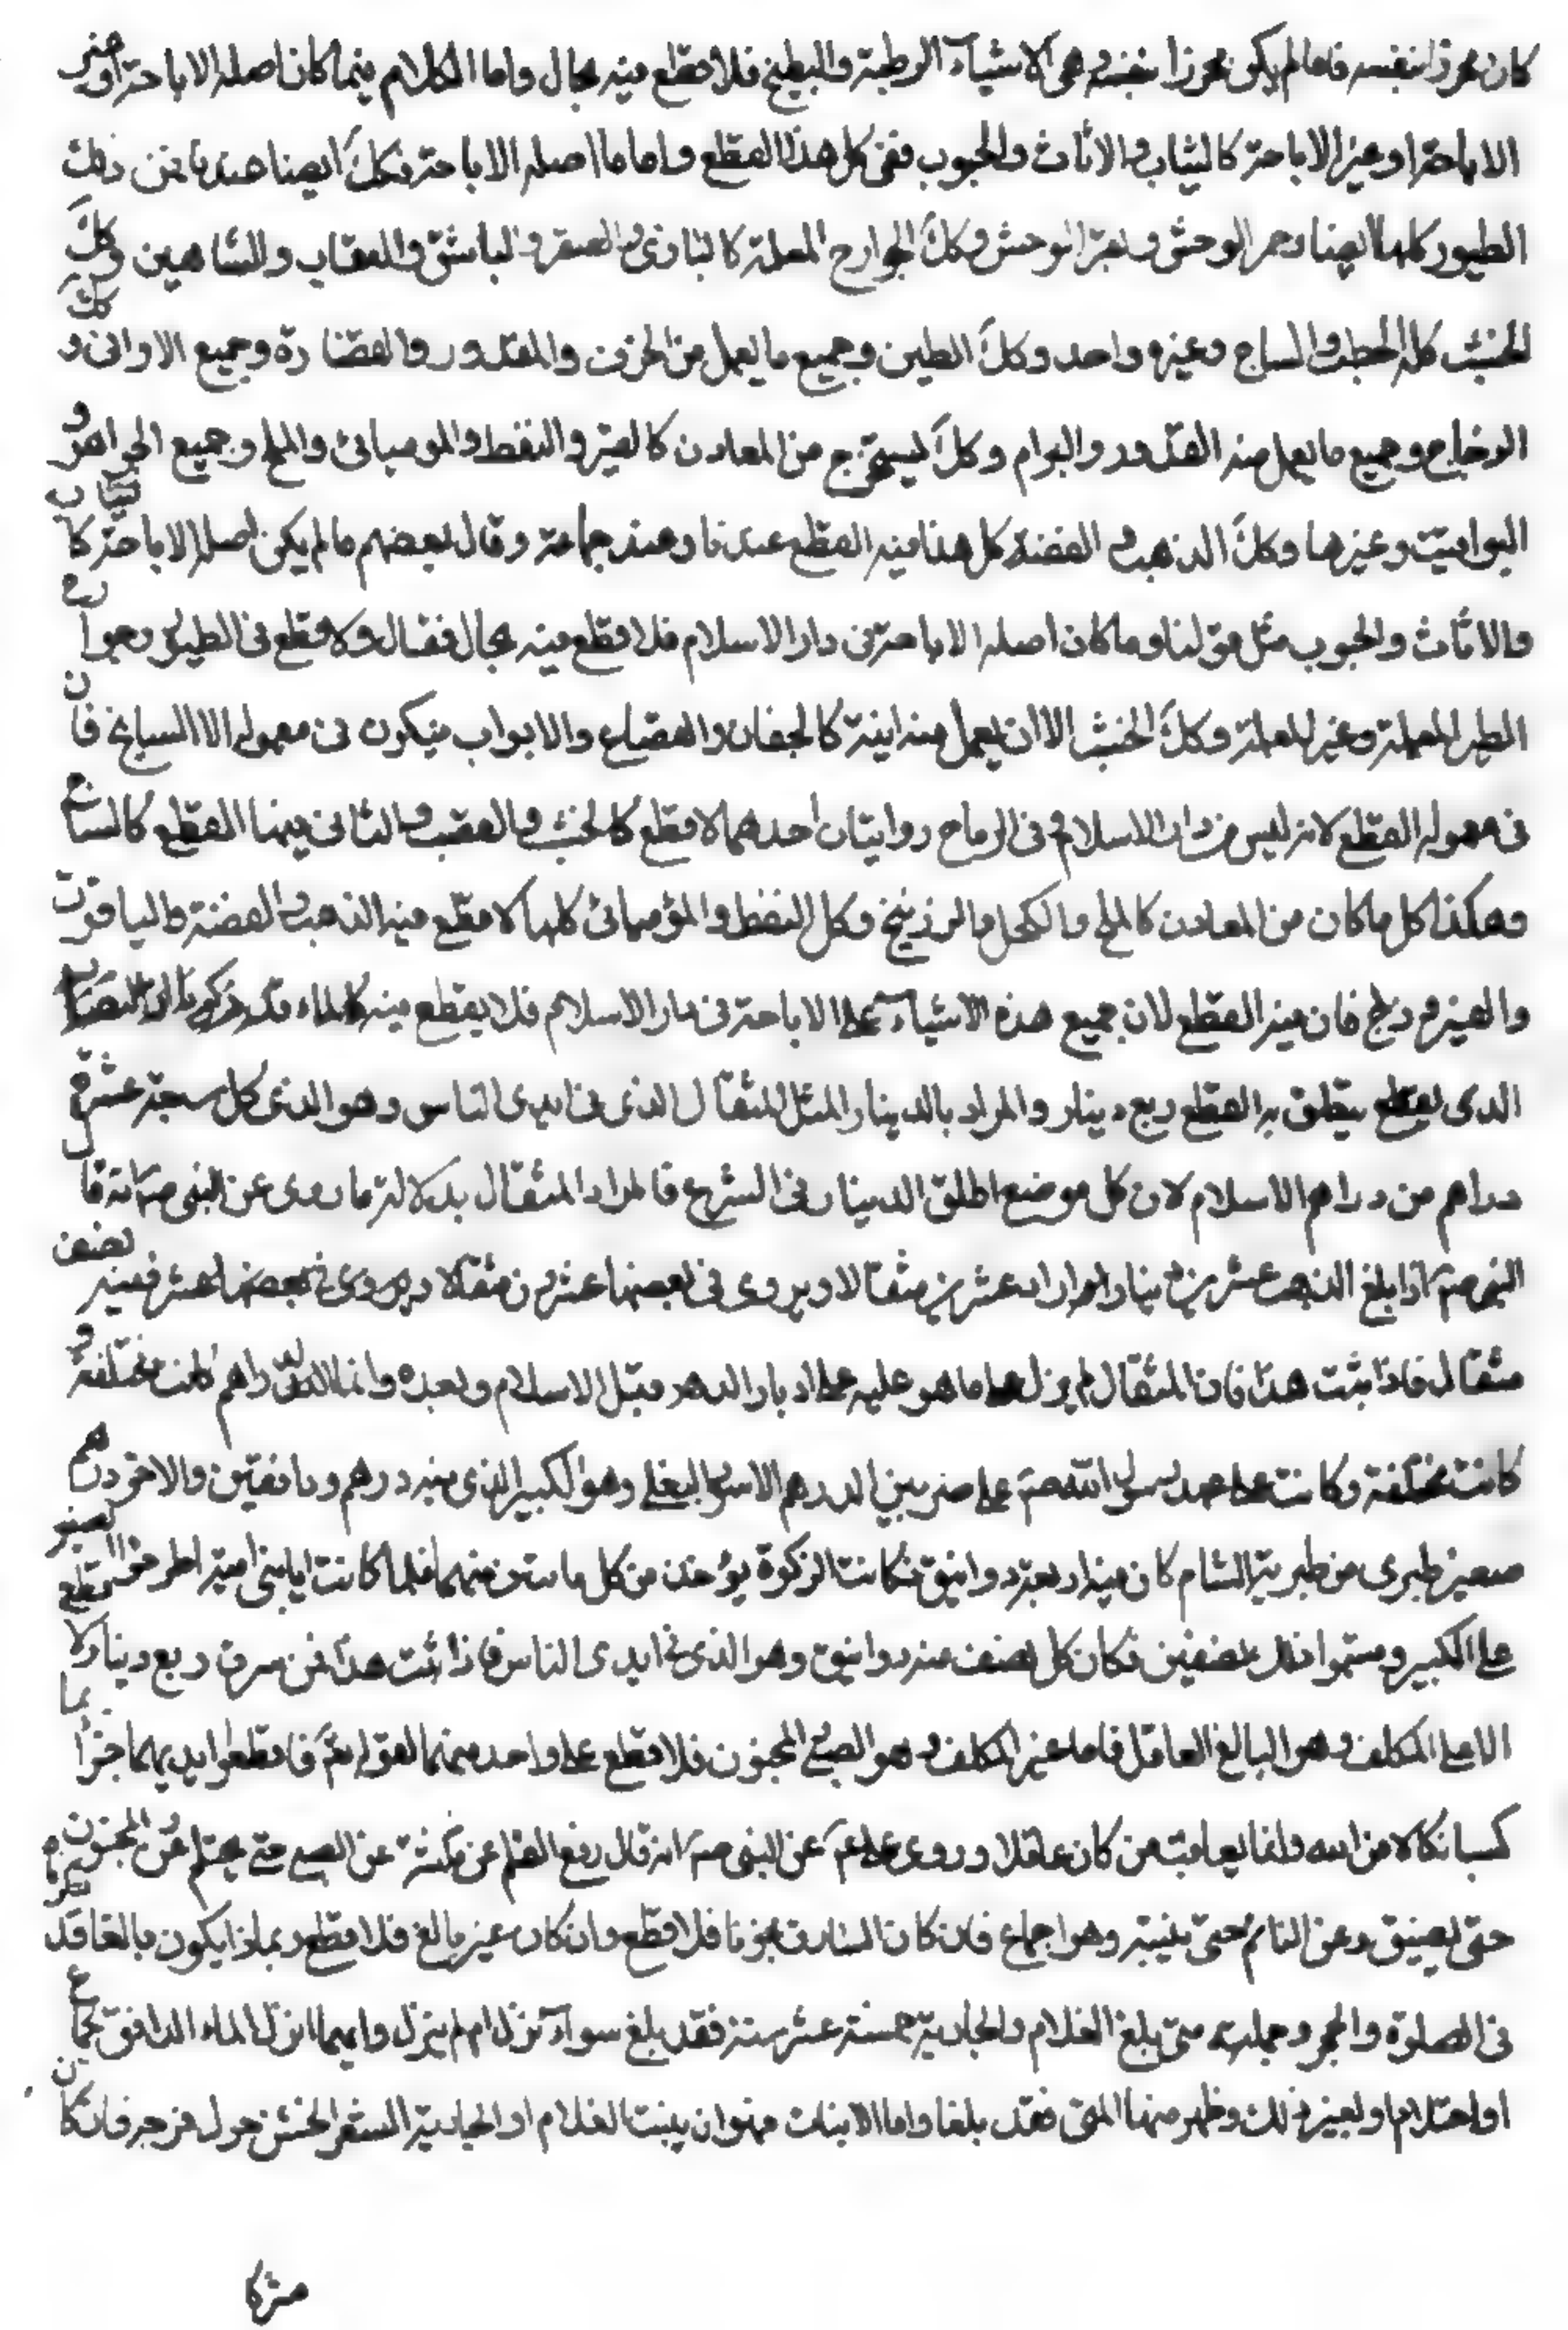 كان محرزا بنفسه فاما لم يكن محرزا بنفسه وهى الاشياء الرطبة والبطيخ فلا قطع فيه بحال واما الكلام فيما كان اصله الاباحة او غير
الاباحة او غير الاباحة كالثياب والاثاث والحبوب ففى كل هذا القطع واما ما اصله الاباحة فكك ايضا عندنا فمن ذلك
الطيور كلها ايضا وحمر الوحش وبقر الوحش وكك الجوارح المعلمة كالبازى والصقر والباشق والعقاب والشاهين وكك
الخشب كله الحطب والساج وغيره واحد وكك الطين وجميع ما يعمل من الخزف والقدور والغضارة وجميع الاوانى وكك
الزجاج وجميع ما يعمل منه القدور والبرام وكك ليستخرج من المعادن كالقير والنفط والموميائى والملح وجميع الجواهر و
اليواقيت وغيرها وكك الذهب والفضة كل هذا فيه القطع عندنا وعند جماعة وقال بعضهم ما لم يكن اصله الاباحة كالثياب
والاثاث والحبوب مثل قولنا وما كان اصله الاباحة فى دار الاسلام فلا قطع فيه بحال فقال ولا قطع فى الطيور وجوارح
الطير المعلمة وغير المعلمة وكك الخشب الا ان يعمل منه انية كالجفان والقصاع والابواب فيكون فى معموله الا الساج فان
فى معموله القطع لانه ليس من دار الاسلام وفى الرماح روايتان احدهما لا قطع كالخشب والقصب والثانى فيها القطع كالساج
وهكذا كل ما كان من المعادن كالملح والكحل والزرنيخ وكك النفط والموميائى كلها لا قطع فيه الا الذهب والفضة والياقوت
والفيروزج فان فيه القطع لان جميع هذه الاشياء على الاباحة فى دار الاسلام فلا يقطع فيه كالماء قد ذكرنا ان النصاب
الذى يقطع يتعلق به القطع ربع دينار والمراد بالدينار المثل المثقال الذى فى ايدى الناس وهو الذى كل سبعة عشرة
دراهم من دراهم الاسلام لان كل موضع اطلق الدينار فى الشرع فالمراد المثقال بدلالة ما روى عن النبى صم انه قال
النبى صم اذا بلغ الذهب عشرين دينارا وارادا عشرين مثقالا ويروى فى بعضها عشرون مثقالا ويروى فى بعضها عشر ففيه نصف
مثقال فاذا ثبت هذا فان المثقال لم يزل على ما هو عليه على ادبار الدهر قبل الاسلام وبعده وانما الدراهم كانت مختلفة و
كانت مختلفة وكانت على عهد رسول الله صم على ضربين الدرهم الاسود البغلى وهو الكبير الذى فيه درهم ودانقين والاخر درهم
صغير طبرى من طبرية الشام كان فيه اربعة دوانيق فكانت الزكوة يؤخذ من كل مائتين منهما فلما كانت ايام بنى امية اطرحوا الصغير
على الكبير وقسموا ذلك نصفين فكان كل نصف ستة دوانيق وهو الذى فى ايدى الناس فاذا ثبت هذا فمن سرق ربع دينار لا يقطع
الا على المكلف وهو البالغ العاقل فاما غير المكلف وهو الصبى المجنون فلا قطع على واحد منهما لقوله تعم فاقطعوا ايديهما جزاء بما
كسبا نكالا من الله وانما يعاقب من كان عاقلا وروى على عم عن النبى صم انه قال رفع القلم عن ثلثة عن الصبى حتى يحتلم وعن المجنون
حتى يفيق وعن النائم حتى ينتبه وهو اجماع فان كان السارق مجنونا فلا قطع وان كان غير بالغ فلا قطع وبماذا يكون بالغا قد ذكرناه
فى الصلوة والحجر وجملته متى بلغ الغلام والجارية خمسة عشر سنة فقد بلغ سواء نزل ام لم ينزل وايهما انزل الماء الدافق بجماع
او احتلام او لغير ذلك وظهر منها المنى فقد بلغا واما الانبات فهو ان ينبت الغلام او الجارية الشعر الخشن حول فرجه فان كان
مشركا